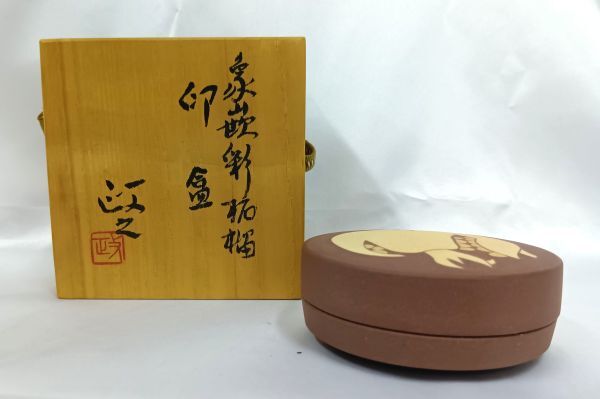 象嵌彩柘榴
印盒
政之
政